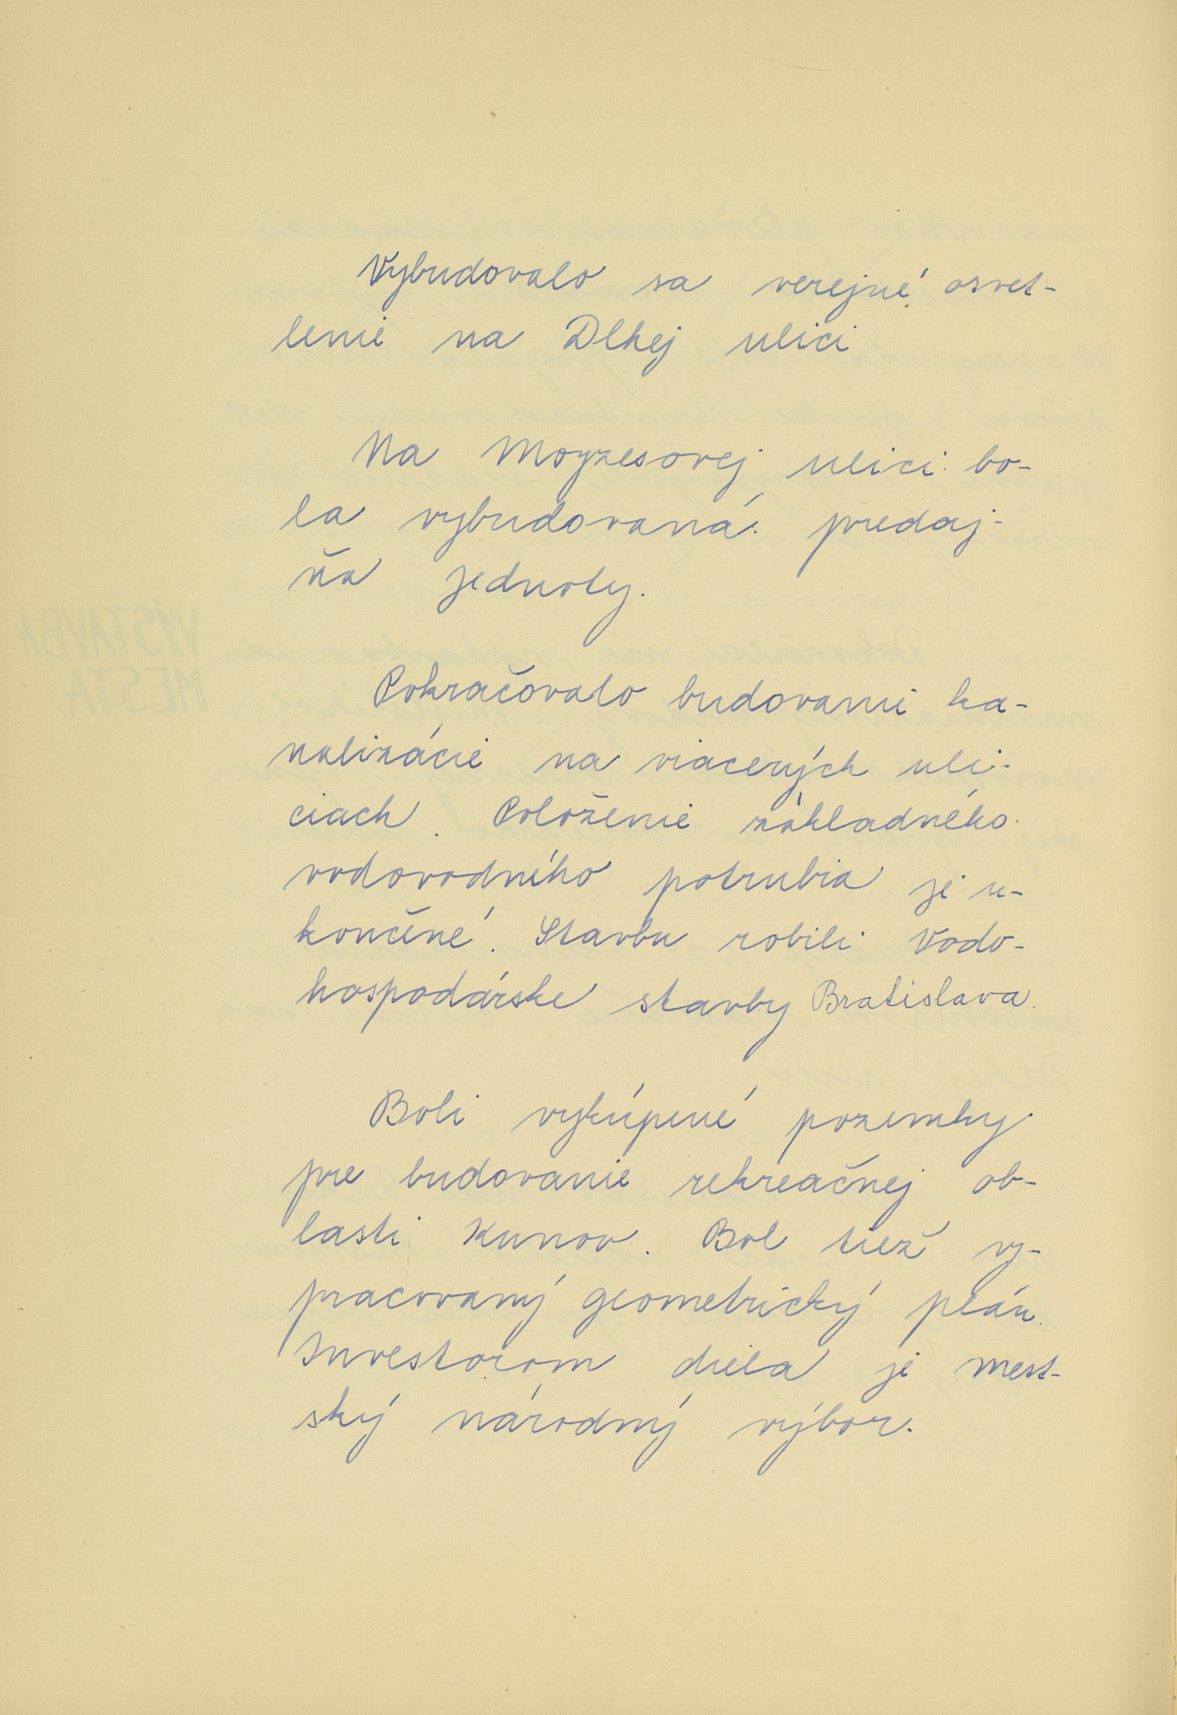 Vybudovalo sa verejné osvet-
lenie na Dlhej ulici
Na Moyzesovej ulici bo-
la vybudovaná predaj-
ňa jednoty.
Pokračovalo budovanie ka-
nalizácie na viacerých uli-
ciach. Položenie základného
vodovodného potrubia je u-
končené. Stavbu robili Vodo-
hospodárske stavby Bratislava.
Boli vykúpené pozemky
pre budovanie rekreačnej ob-
lasti Kunov. Bol tiež vy-
pracovaný geometrický plán.
Investorom diela je Mest-
ský národný výbor.